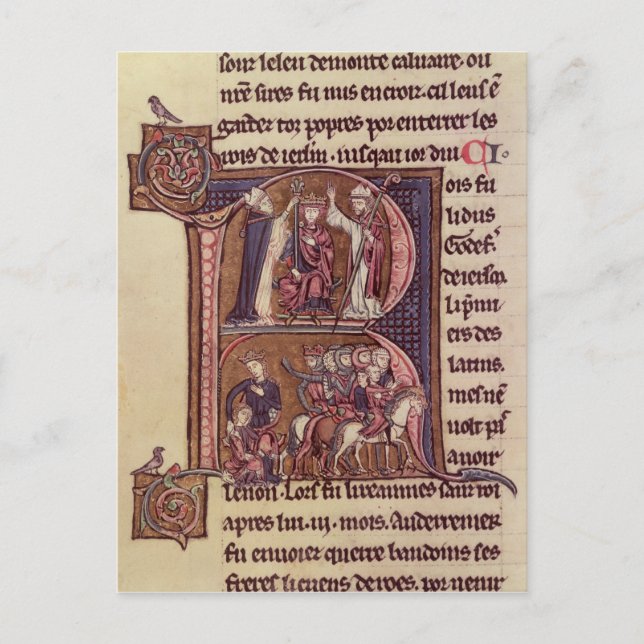 sour le leu de monte caluaire. ou
nr̃e sires fu mis en croiz. cil leus ẽ
garder toz propres por enterrer les
rois de ierlm̃. iusqau ior dui CI.
R
ois fu
li dus
Godef.
de ierlm̃.
li p̃mi
ers des
latins.
mes nẽ
uolt p̃s
auoir
le non. Lors fu li reaumes sanz roi
apres lui. iij. mois. Au derrenier
fu enuoiez querre baudoins ses
freres li cuens de roes. por uenir